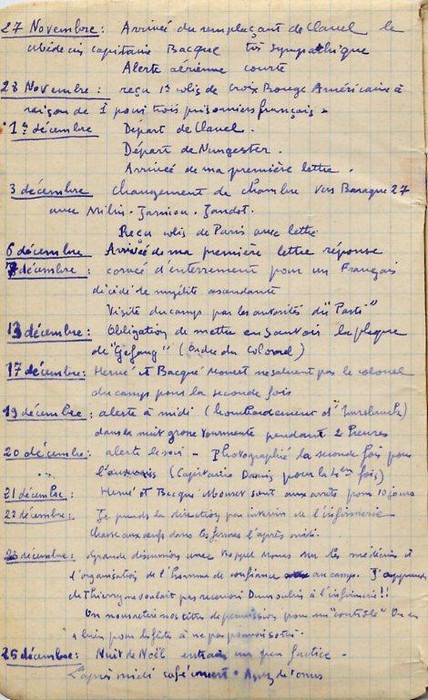 27 Novembre : Arrivée du remplaçant de Clavel le
médecin capitaine Bacque très sympathique
Alerte aérienne courte
28 Novembre : reçu 1er colis de Croix Rouge Américaine à
raison de 1 pour trois prisonniers français
1er décembre Départ de Clavel.
Départ de Nungester.
Arrivée de ma première lettre.
3 décembre Changement de chambre vers Baraque 27
avec
Reçu colis de Paris avec lettre
6 décembre Arrivée de ma première lettre réponse
7 décembre : corvée d'enterrement pour un Français
décédé de myélite ascendante
Visite du camp par les autorités du "Parti"
13 décembre : Obligation de mettre en sautoir la plaque
de "Gefang" (Ordre du Colonel)
17 décembre : Hervé et Bacqué ne saluent pas le colonel
du camp pour la seconde fois
19 décembre : alerte à midi (bombardement d'
dans la nuit grosse tourmente pendant 2 heures
20 décembre : alerte le soir - Photographié la seconde fois pour
(Capitaine pour la 4ème fois)
21 décembre : Hervé et Bacque sont aux arrêts pour 10 jours
22 décembre : Je prends la direction par intérim de l'infirmerie
l'après midi.
décembre : Grande discussion avec sur les médecins et
l'organisation de l'homme de confiance au camp. J'apprends
que Thierry ne voulait pas recevoir à l'infirmerie !!
On nous retire nos titres de permission pour un "contrôle" On en
a bien pour les fêtes à ne pas pouvoir sortir.
25 décembre : Nuit de Noël entrain un peu factice -
L'après midi café concert.